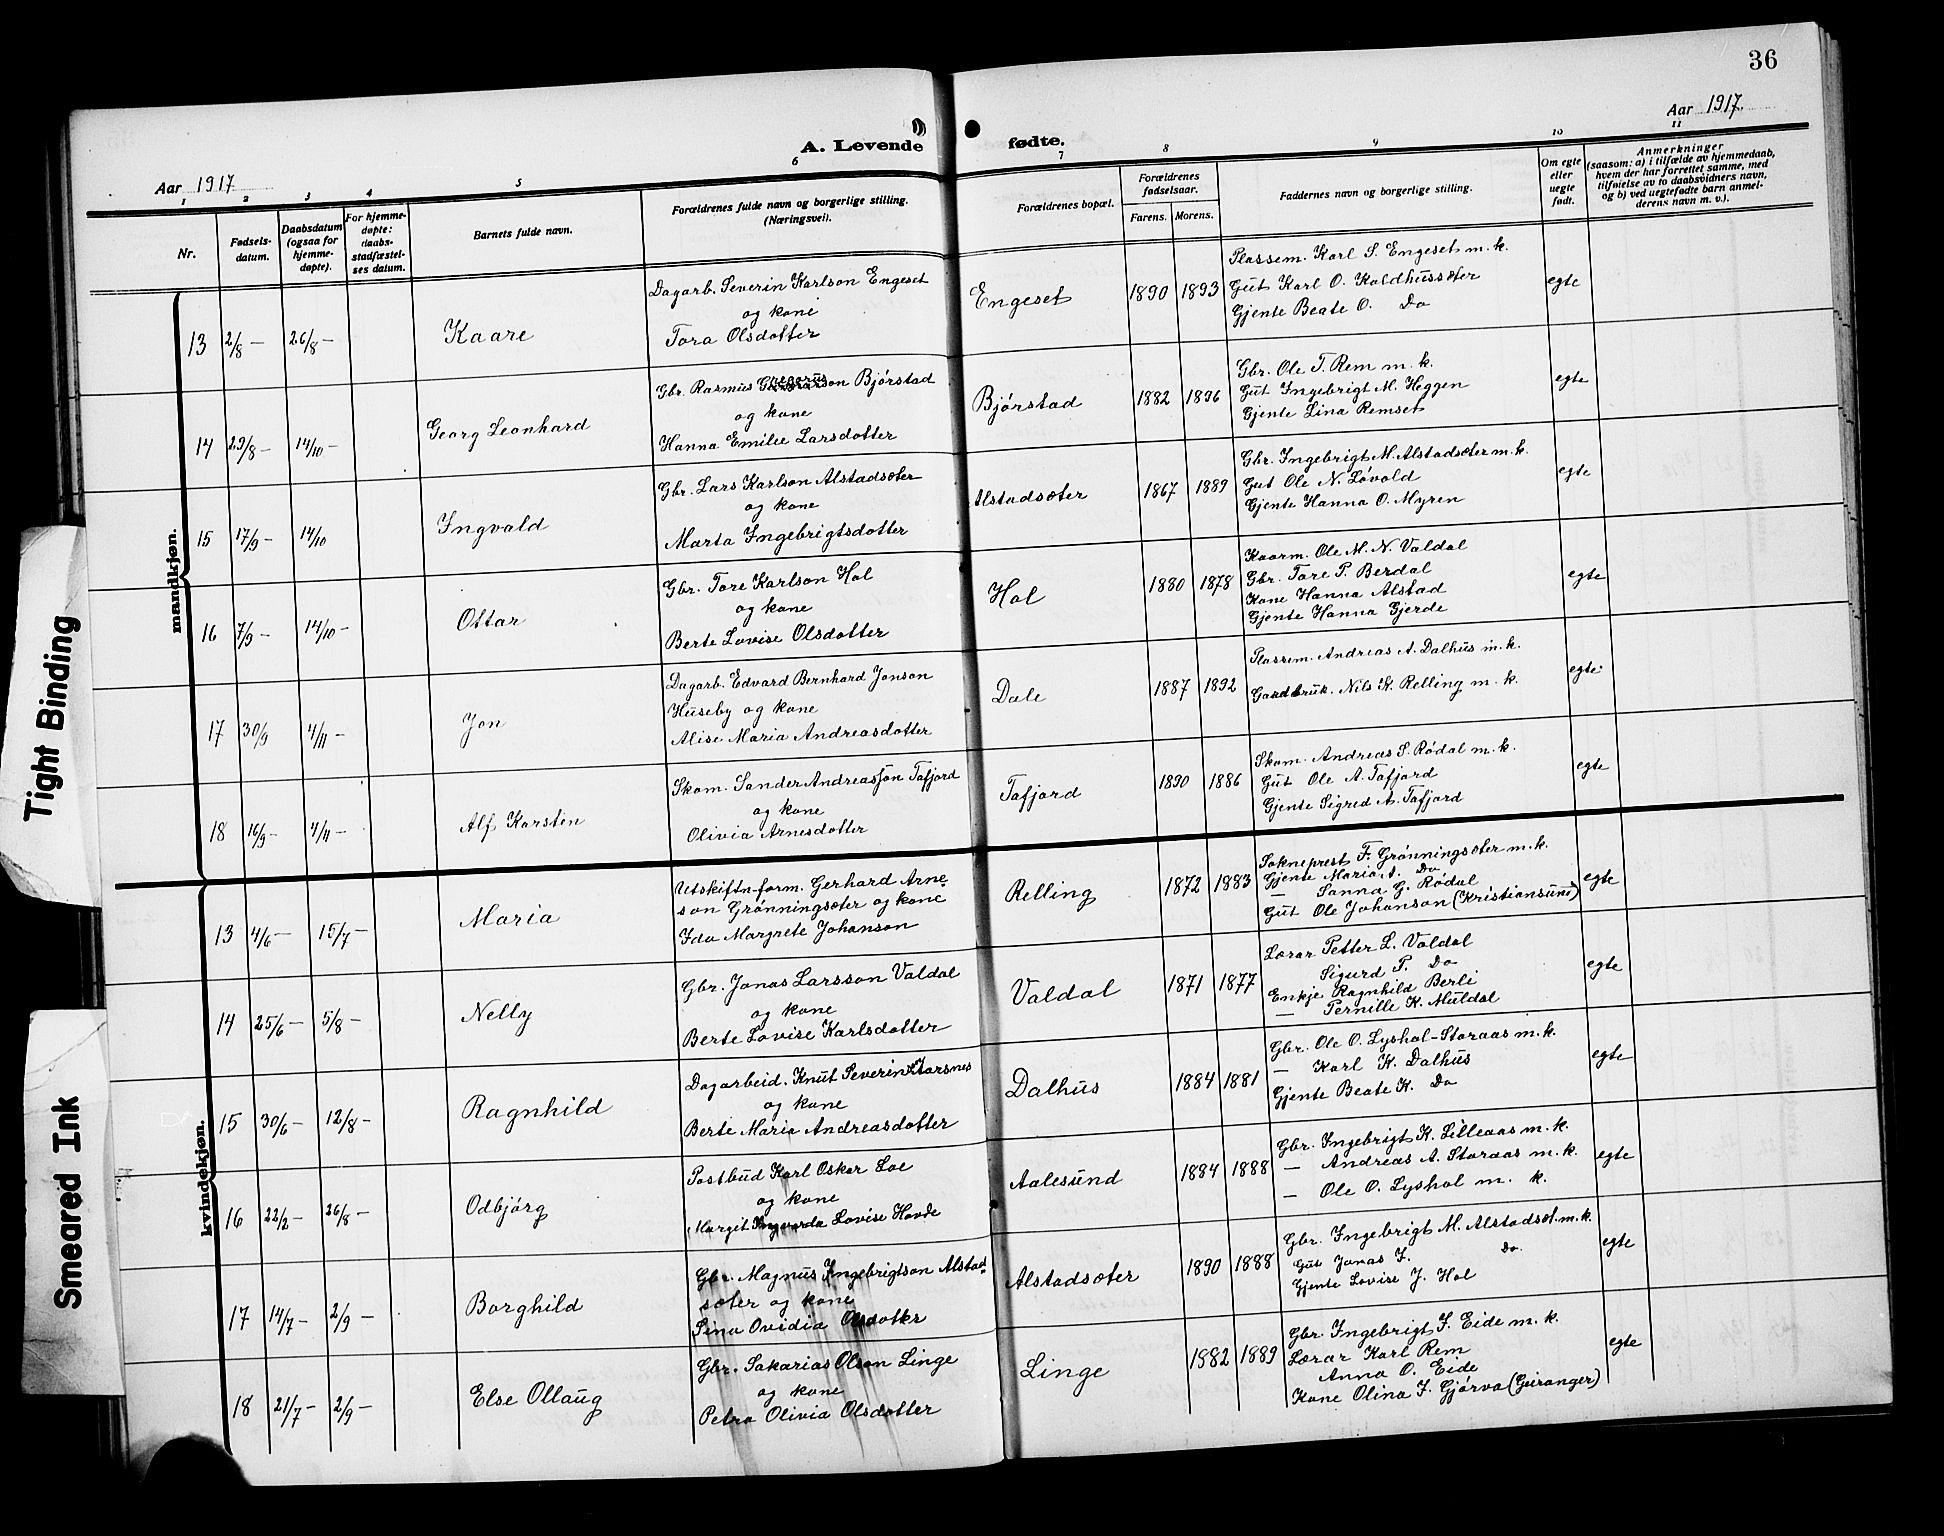 36
Aar 1917
A. Levende
fødte.
Aar 1917.
1 2 3 4 5 6 7 8 9 10 11
Nr.
Fødsels-
datum.
Daabsdatum
(ogsaa for
hjemme-
døpte).
For hjemme-
døpte:
daabs-
stadfæstel-
ses datum.
Barnets fulde navn.
Forældrenes fulde navn og borgerlige stilling.
(Næringsvei).
Forældrenes bopæl.
Forældrenes
fødselsaar.
Farens. Morens.
Faddernes navn og borgerlige stilling.
Om egte
eller
uegte
født.
Anmerkninger
(saasom: a) i tilfælde av hjemmedaab,
hvem der har forrettet samme, med
tilføielse av to daabsvidners navn,
og b) ved uegtefødte barn anmel-
derens navn m. v.).
mandkjøn.
13 2/8 — 26/8 — Kaare
Dagarb. Severin Karlson Engeset
og kone
Tora Olsdotter
Engeset 1890 1893
Plassem. Karl S. Engeset m. k.
Gut Karl O. Kaldhussæter
Gjente Beate O. Do
egte
14 29/8 — 14/10 — Georg Leonhard
Gbr. Rasmus Gregoriusson Bjørstad
og kone
Hanna Emilie Larsdotter
Bjørstad 1882 1896
Gbr. Ole T. Rem m. k.
Gut Ingebrigt M. Heggen
Gjente Lina Remset
egte
15 17/9 — 14/10 Ingvald
Gbr. Lars Karlson Alstadsæter
og kone
Marta Ingebrigtsdotter
Alstadsæter 1867 1889
Gbr. Ingebrigt M. Alstadsæter m. k.
Gut Ole N. Løvold
Gjente Hanna O. Myren
egte
16 7/9 — 14/10 — Ottar
Gbr. Tore Karlson Hol
og kone
Berte Lovise Olsdotter
Hol 1880 1878
Kaarm. Ole M. N. Valdal
Gbr. Tore P. Berdal
Kone Hanna Alstad
Gjente Hanna Gjerde
egte
17 30/9 4/11 — Jon
Dagarb. Edvard Bernhard Jonson
Huseby og kone
Alise Maria Andreasdotter
Dale 1887 1892
Plassem. Andreas A. Dalhus m. k.
Gardbruk. Nils K. Relling m. k.
egte
18 16/9 — 4/11 — Alf Karsten
Skom. Sander Andreasson Tafjord
og kone
Olivia Arnesdotter
Tafjord 1890 1886
Skom. Andreas S. Rødal m. k.
Gut Ole A. Tafjord
Gjente Sigred A. Tafjord
egte
kvindekjøn.
13 4/6 — 15/7 — Maria
Utskiftn-form. Gerhard Arne-
son Grønningsæter og kone
Ida Margrete Johanson
Relling 1872 1883
Sokneprest F. Grønningsæter m. k.
Gjente Maria A. Do
— Sanna G. Rødal
Gut Ole Johanson (Kristiansund)
egte
14 25/6 — 5/8 — Nelly
Gbr. Jonas Larsson Valdal
og kone
Berte Lovise Karlsdotter
Valdal 1871 1877
Lærar Petter L. Valdal
Sigurd P. Do
Enkje Ragnhild Berli
— Pernille K. Muldal
egte
15 30/6 — 12/8 — Ragnhild
Dagarbeid. Knut Severin Storsnes
og kone
Berte Maria Andreasdotter
Dalhus 1884 1881
Gbr. Ole O. Lyshol-Storaas m. k.
— Karl K. Dalhus
Gjente Beate K. Do
egte
16 22/2 — 26/8 — Odbjørg
Postbud Karl Oskar Loe
og kone
Margit Ingvarda Lovise Hovde
Aalesund 1884 1888
Gbr. Ingebrigt K. Lilleaas m. k.
— Andreas A. Storaas m. k.
— Ole O. Lyshol m. k.
egte
17 14/7 — 2/9 — Borghild
Gbr. Magnus Ingebrigtson Alstad-
sæter og kone
Sina Ovidia Olsdotter
Alstadsæter 1890 1888
Gbr. Ingebrigt M. Alstadsæt. m. k.
Gut Jonas I. Do.
Gjente Lovise J. Hol
egte
18 21/7 — 2/9 — Else Ollaug
Gbr. Sakarias Olson Linge
og kone
Petra Olivia Olsdotter
Linge 1882 1889
Gbr. Ingebrigt I. Eide m. k.
Lærar Karl Rem
Anna O. Eide
Kone Olina I. Gjørva (Geiranger)
egte
Tight Binding
Smeared Ink